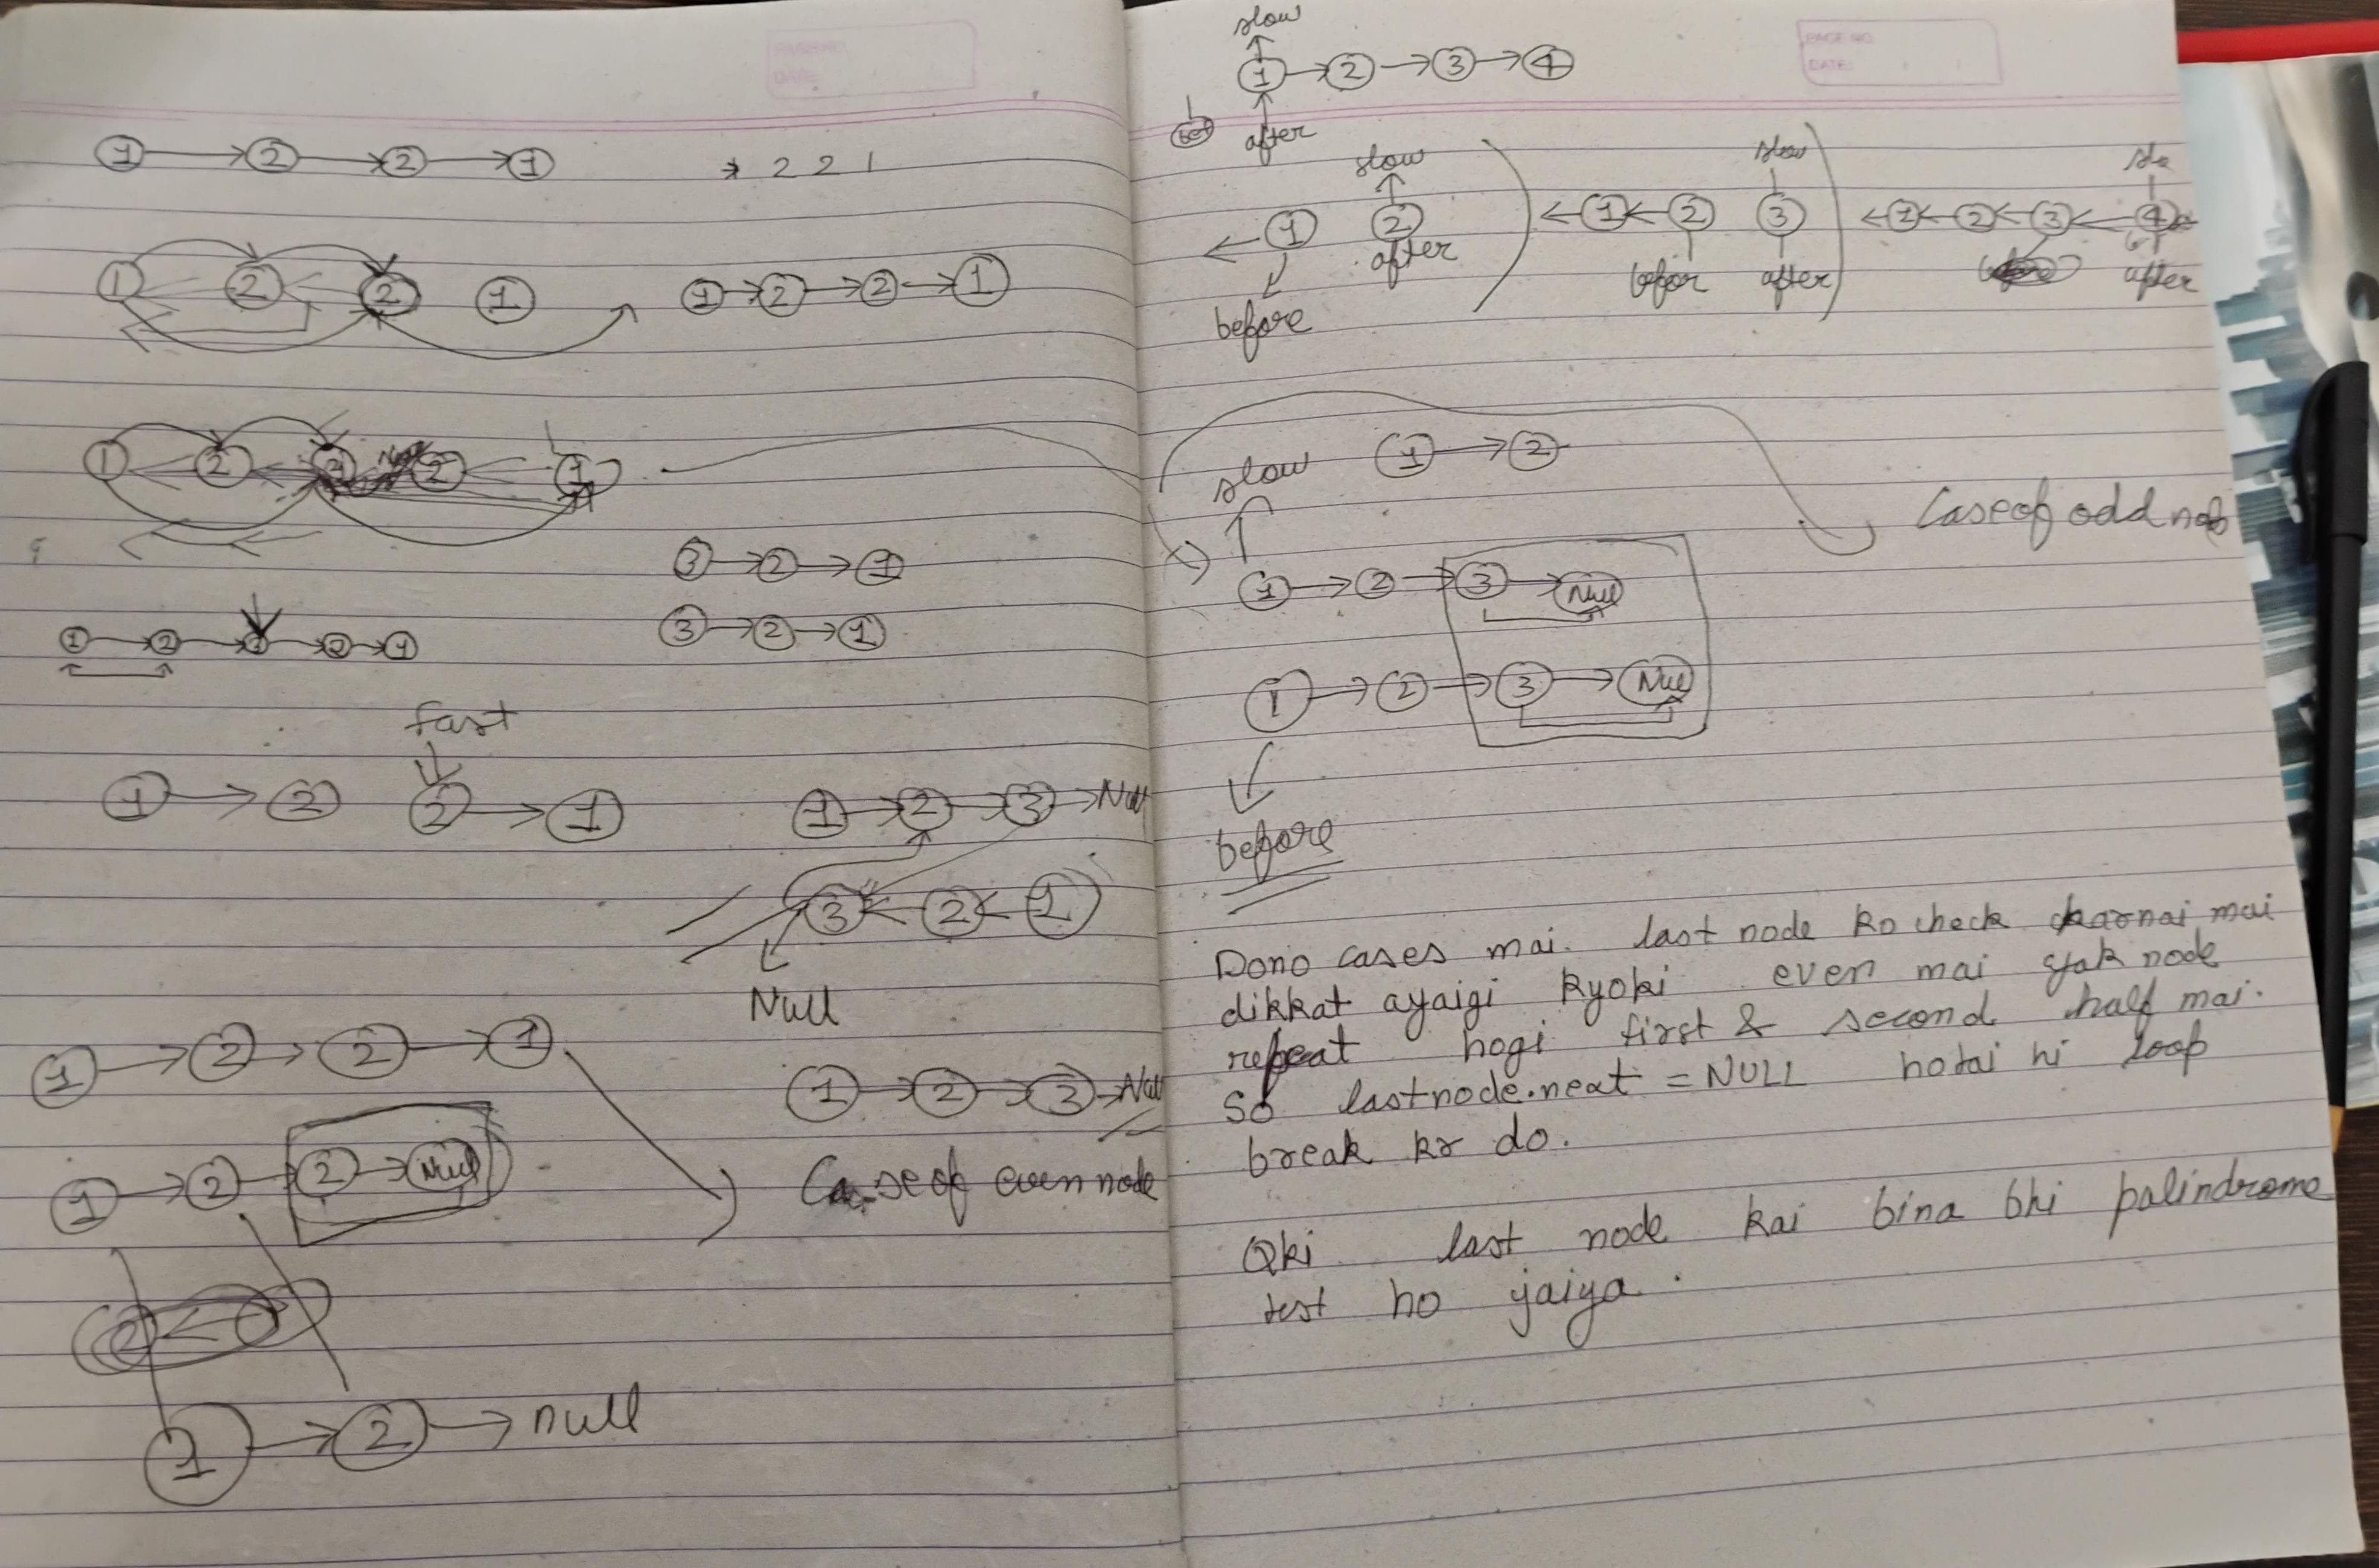 PAGE NO.
DATE:
1 → 2 → 2 → 1
→ 2 2 1
1 2 2 1
1 → 2 → 2 → 1
1 2 2 1
3 → 2 → 1
3 → 2 → 1
1 → 2 → 1 → 2 → 1
fast
1 → 2 2 → 1
1 → 2 → 3 → Null
3 ← 2 ← 1
Null
1 → 2 → 2 → 1
1 → 2 → 3 → Null
1 → 2 → 2 → Null
Case of even node
1 → 2 → null
PAGE NO.
DATE:
slow
1 → 2 → 3 → 4
bef
after
slow
← 1 2
after
before
slow
← 1 ← 2 3
befor after
slo
← 1 ← 2 ← 3 ← 4
after
1 → 2
slow
Case of odd node
1 → 2 → 3 → Null
1 → 2 → 3 → Null
before
Dono cases mai. last node ko check karnai mai
dikkat ayaigi kyoki even mai yak node
repeat hogi first & second half mai.
So lastnode.next = NULL hotai hi loop
break kr do.
Qki last node kai bina bhi palindrome
test ho jaiya.